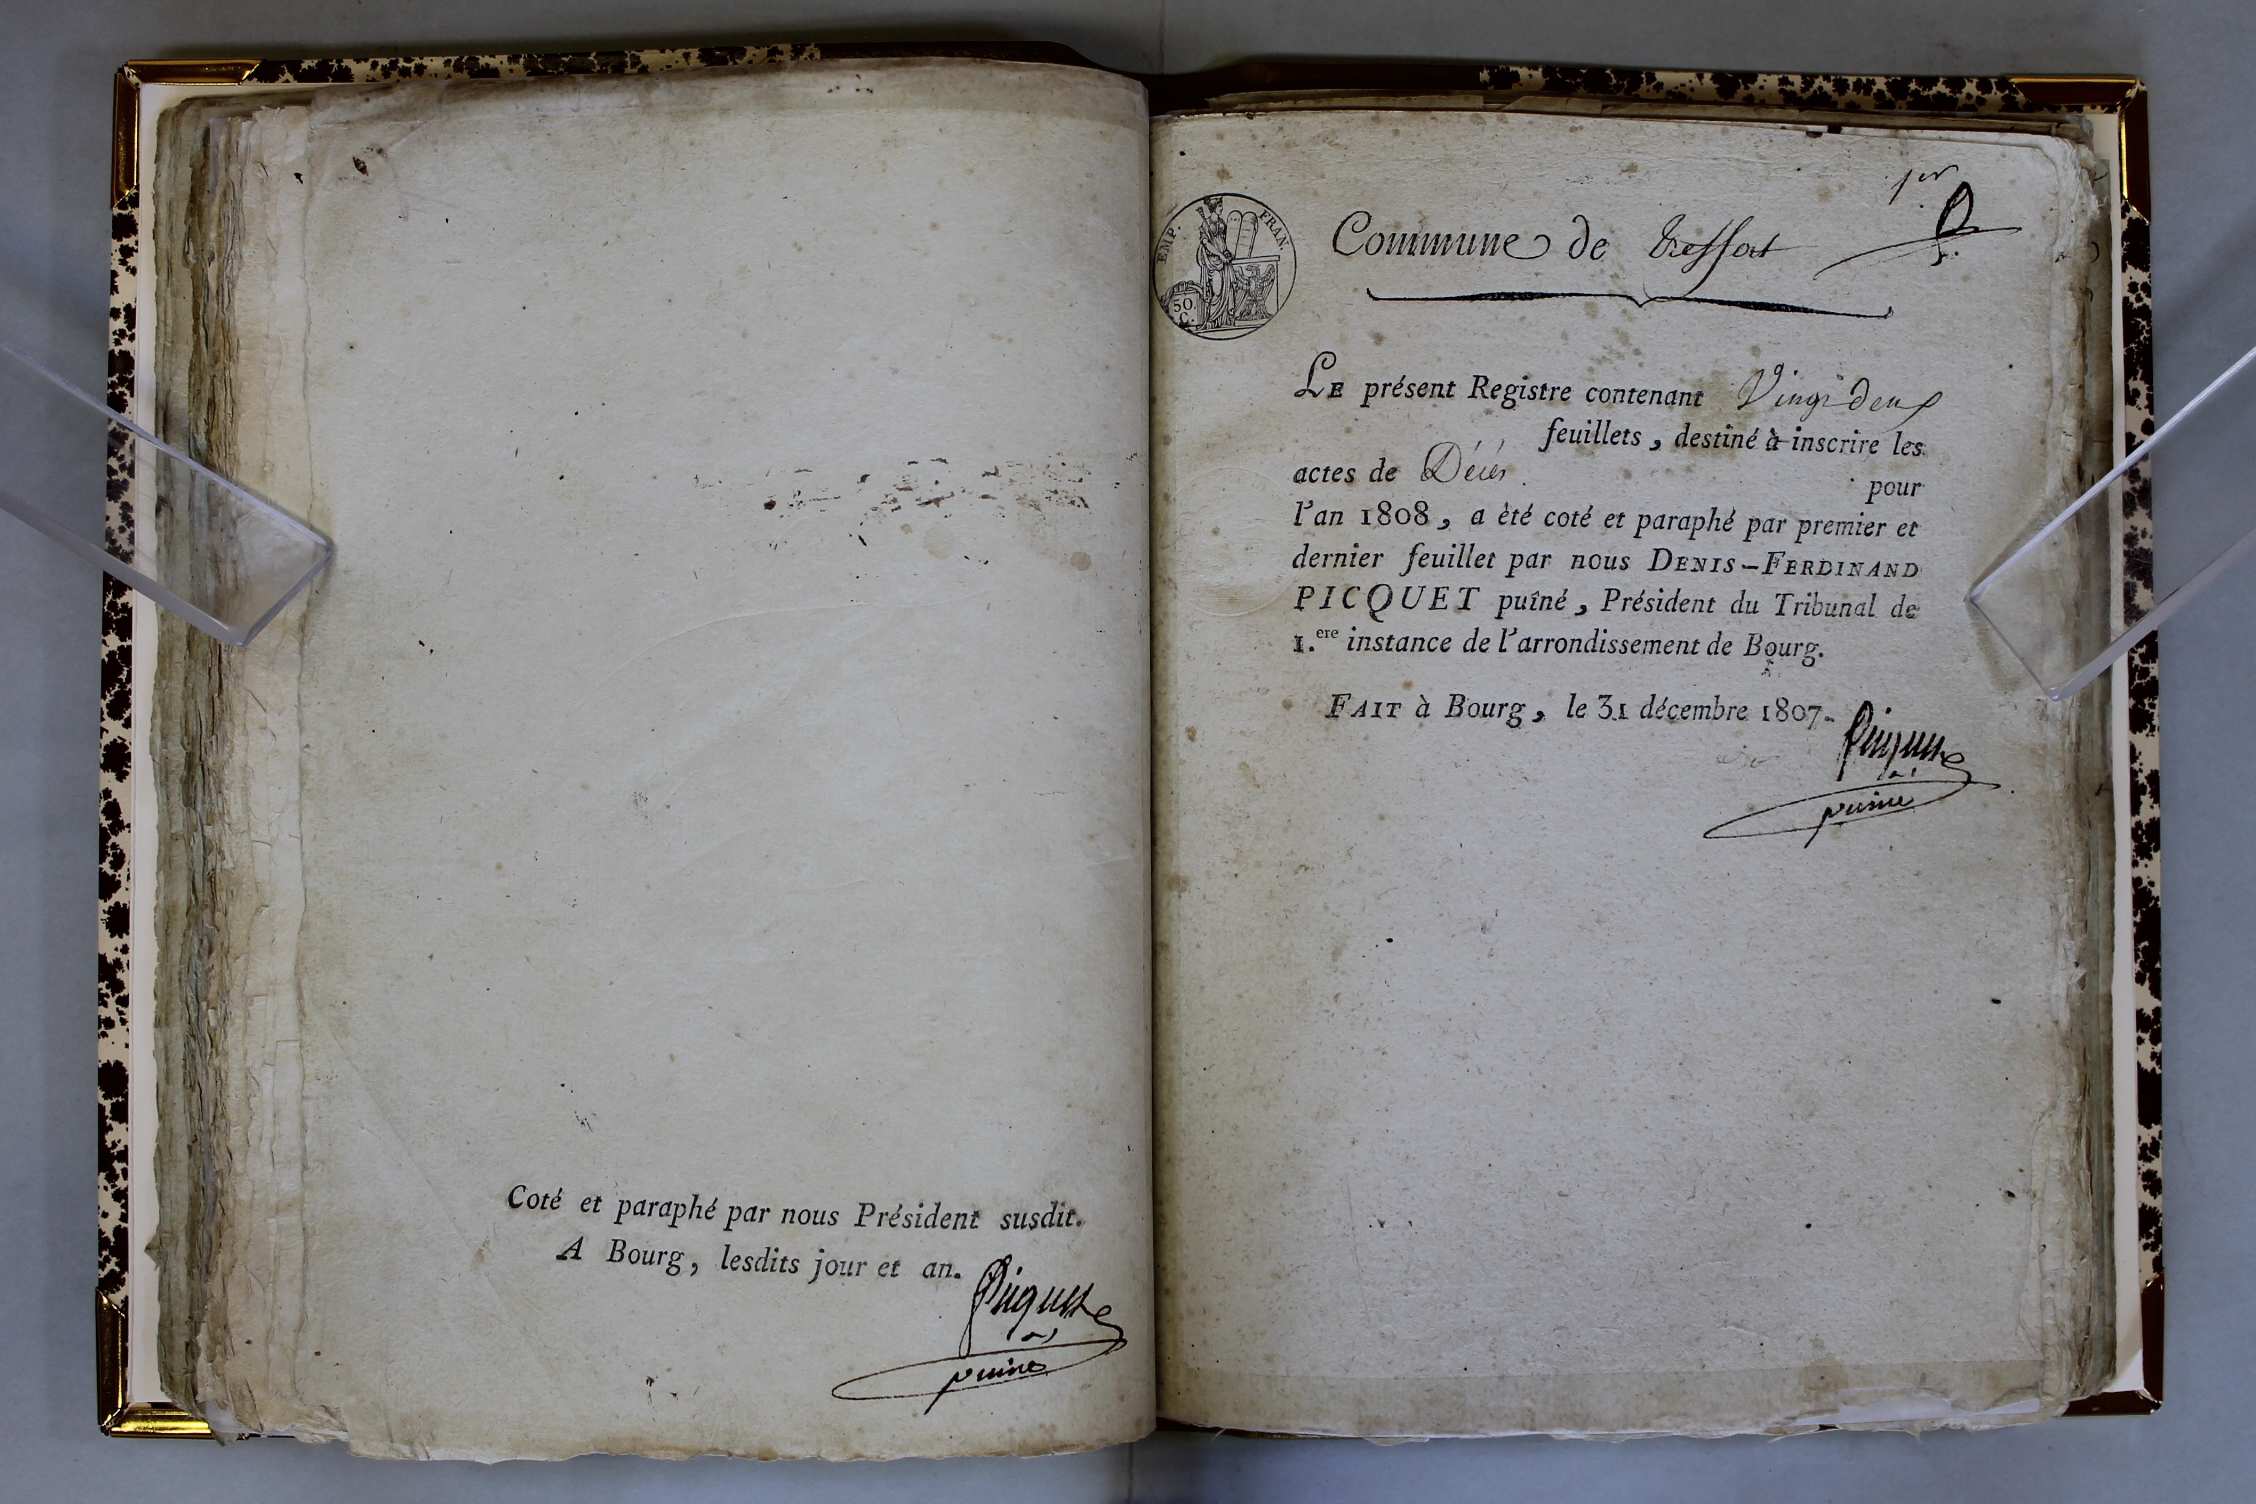 Coté et paraphé par nous Président susdit.
A Bourg, lesdits jour et an.
Picquet
puiné
1er
EMP. FRAN.
50.
C.
Commune de Treffort
LE présent Registre contenant Vingt deux
feuillets, destiné à inscrire les
actes de Décès pour
l'an 1808, a èté coté et paraphé par premier et
dernier feuillet par nous DENIS-FERDINAND
PICQUET puîné, Président du Tribunal de
1.ere instance de l'arrondissement de Bourg.
FAIT à Bourg, le 31 décembre 1807.
Picquet
puiné